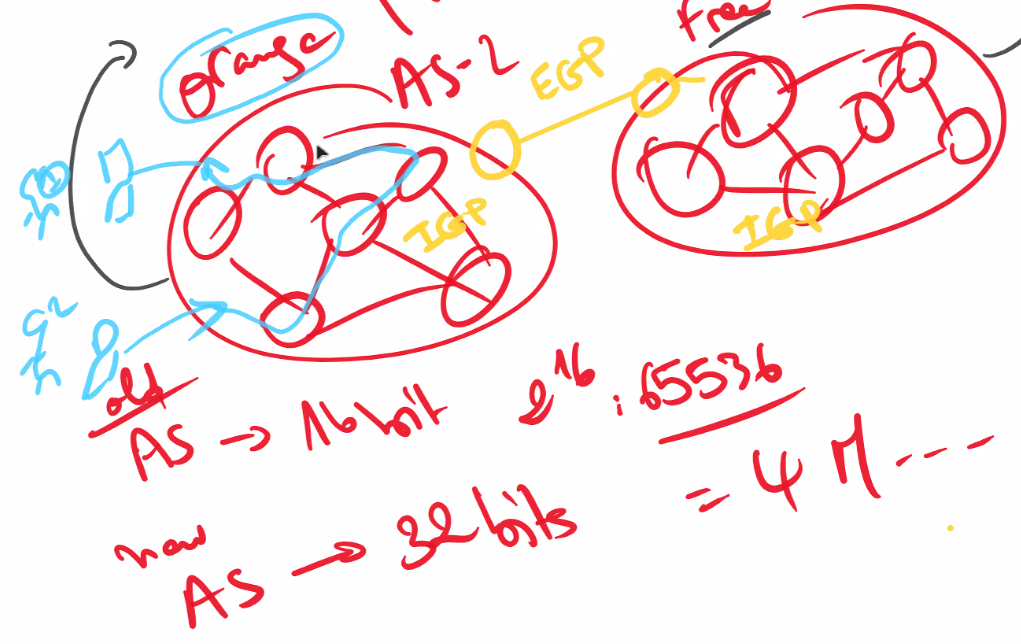 Free
orange
AS-2
EGP
IGP
IGP
old
AS → 16 bit 2^16 : 65536
= 4 M ----
new
AS → 32 bits